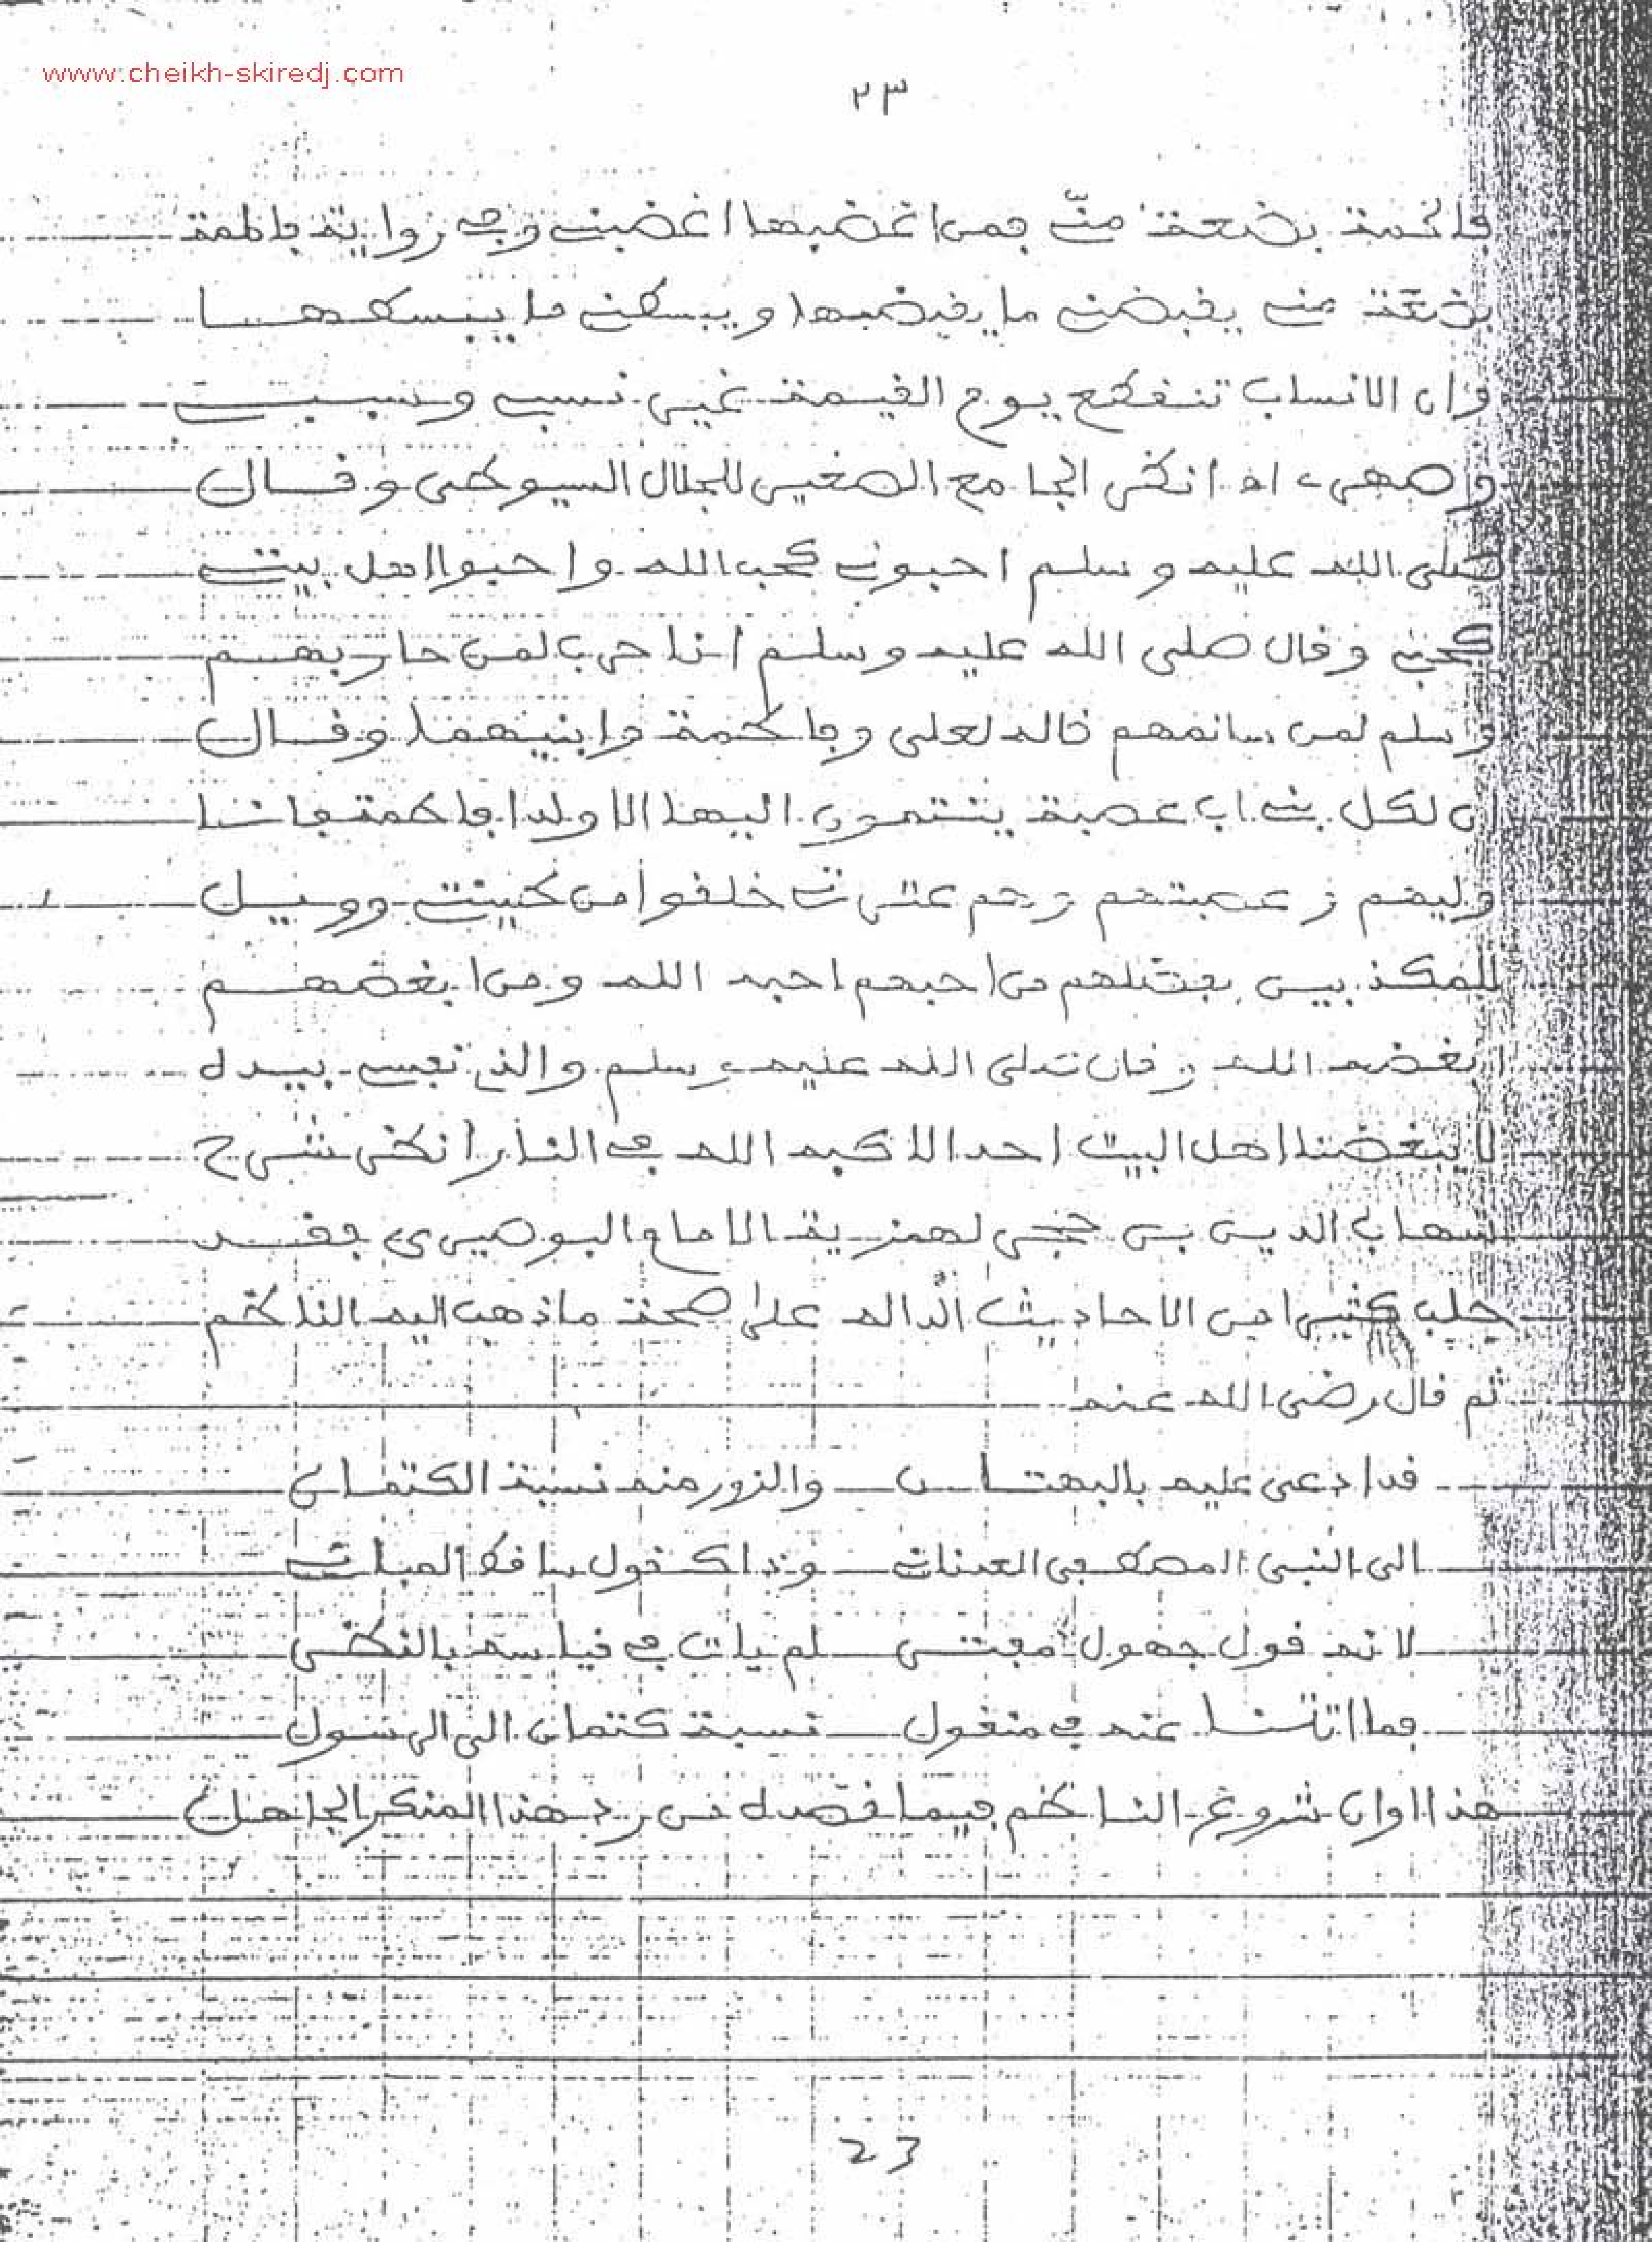 www.cheikh-skiredj.com
٢٣
فاطمة بضعة منى فمن اغضبها اغضبنى وفى رواية فاطمة
بضعة منى يقبضنى ما يقبضها ويبسطنى ما يبسطهــا
وان الانساب تنقطع يوم القيمة غير نسبى وسببى
وصهرى اه انظر الجامع الصغير للجلال السيوطى وقــال
صلى الله عليه وسلم احبونى لحب الله واحبوا اهل بيتى
لحبى وقال صلى الله عليه وسلم انا حرب لمن حاربهــم
وسلم لمن سالمهم قاله لعلى وفاطمة وابنيهما وقــال
ان لكل بنى اب عصبة ينتمون اليها الا ولد فاطمة فانــا
وليهم وعصبتهم وهم عترتى خلقوا من طينتى وويــل
للمكذبين بفضلهم من احبهم احبه الله ومن ابغضهــم
ابغضه الله وقال صلى الله عليه وسلم والذى نفسى بيده
لا يبغضنا اهل البيت احد الا كبه الله فى النار انظر شرح
شهاب الدين بن حجر لهمزية الامام البوصيرى فقــد
جلب كثيرا من الاحاديث الدالة على صحة ما ذهب اليه الناظم
ثم قال رضى الله عنه
قد ادعى عليه بالبهتــان والزور منه نسبة الكتمــان
الى النبى المصطفى العدنانى وذاك قول ساقط المبانى
لانه قول جهول مفتــرى لم يات فى قياسه بالنظــر
فما اتانــا عنه فى منقول نسبة كتمان الى الرسول
هذا اوان شروع الناظم فيما قصده من رد هذا المنكر الجاهل
23